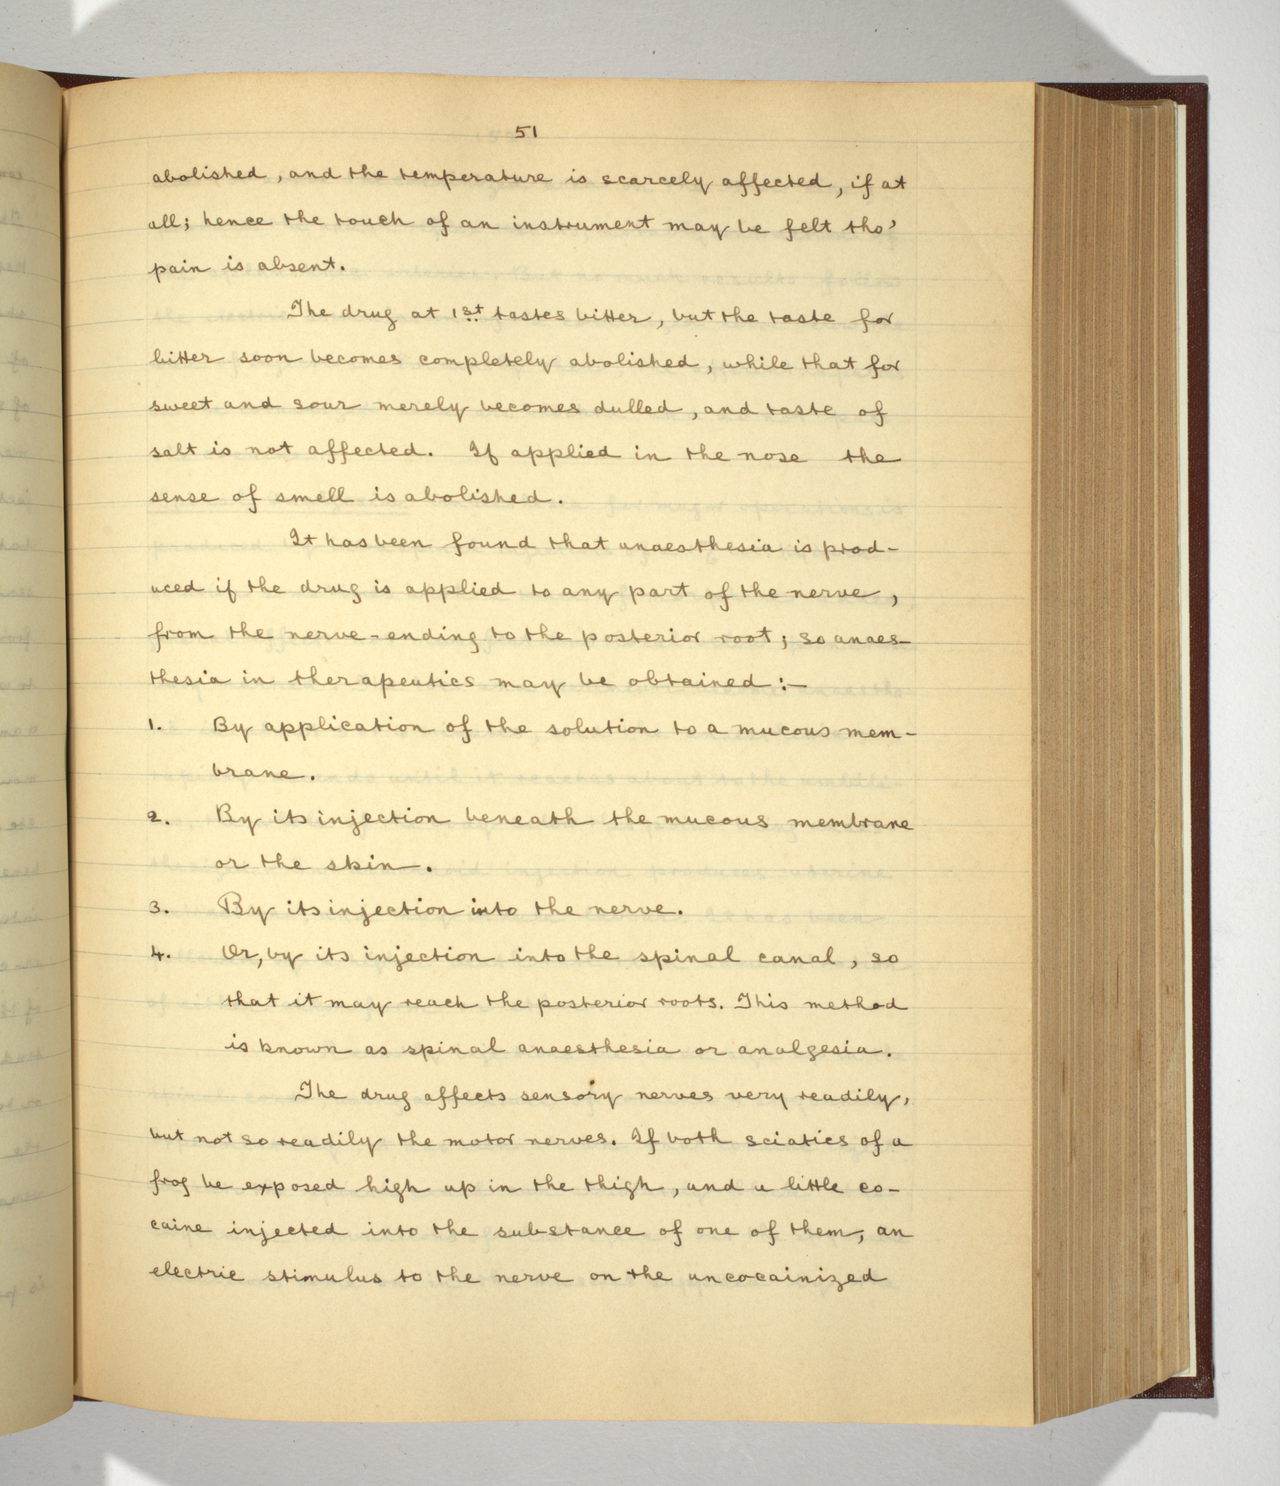 51
abolished, and the temperature is scarcely affected, if at
all; hence the touch of an instrument may be felt tho'
pain is absent.
The drug at 1st tastes bitter, but the taste for
bitter soon becomes completely abolished, while that for
sweet and sour merely becomes dulled, and taste of
salt is not affected. If applied in the nose the
sense of smell is abolished.
It has been found that anaesthesia is prod-
uced if the drug is applied to any part of the nerve,
from the nerve-ending to the posterior root; so anaes-
thesia in therapeutics may be obtained:-
1. By application of the solution to a mucous mem-
brane.
2. By its injection beneath the mucous membrane
or the skin.
3. By its injection into the nerve.
4. Or, by its injection into the spinal canal, so
that it may reach the posterior roots. This method
is known as spinal anaesthesia or analgesia.
The drug affects sensory nerves very readily,
but not so readily the motor nerves. If both sciatics of a
frog be exposed high up in the thigh, and a little co-
caine injected into the substance of one of them, an
electric stimulus to the nerve on the uncocainized